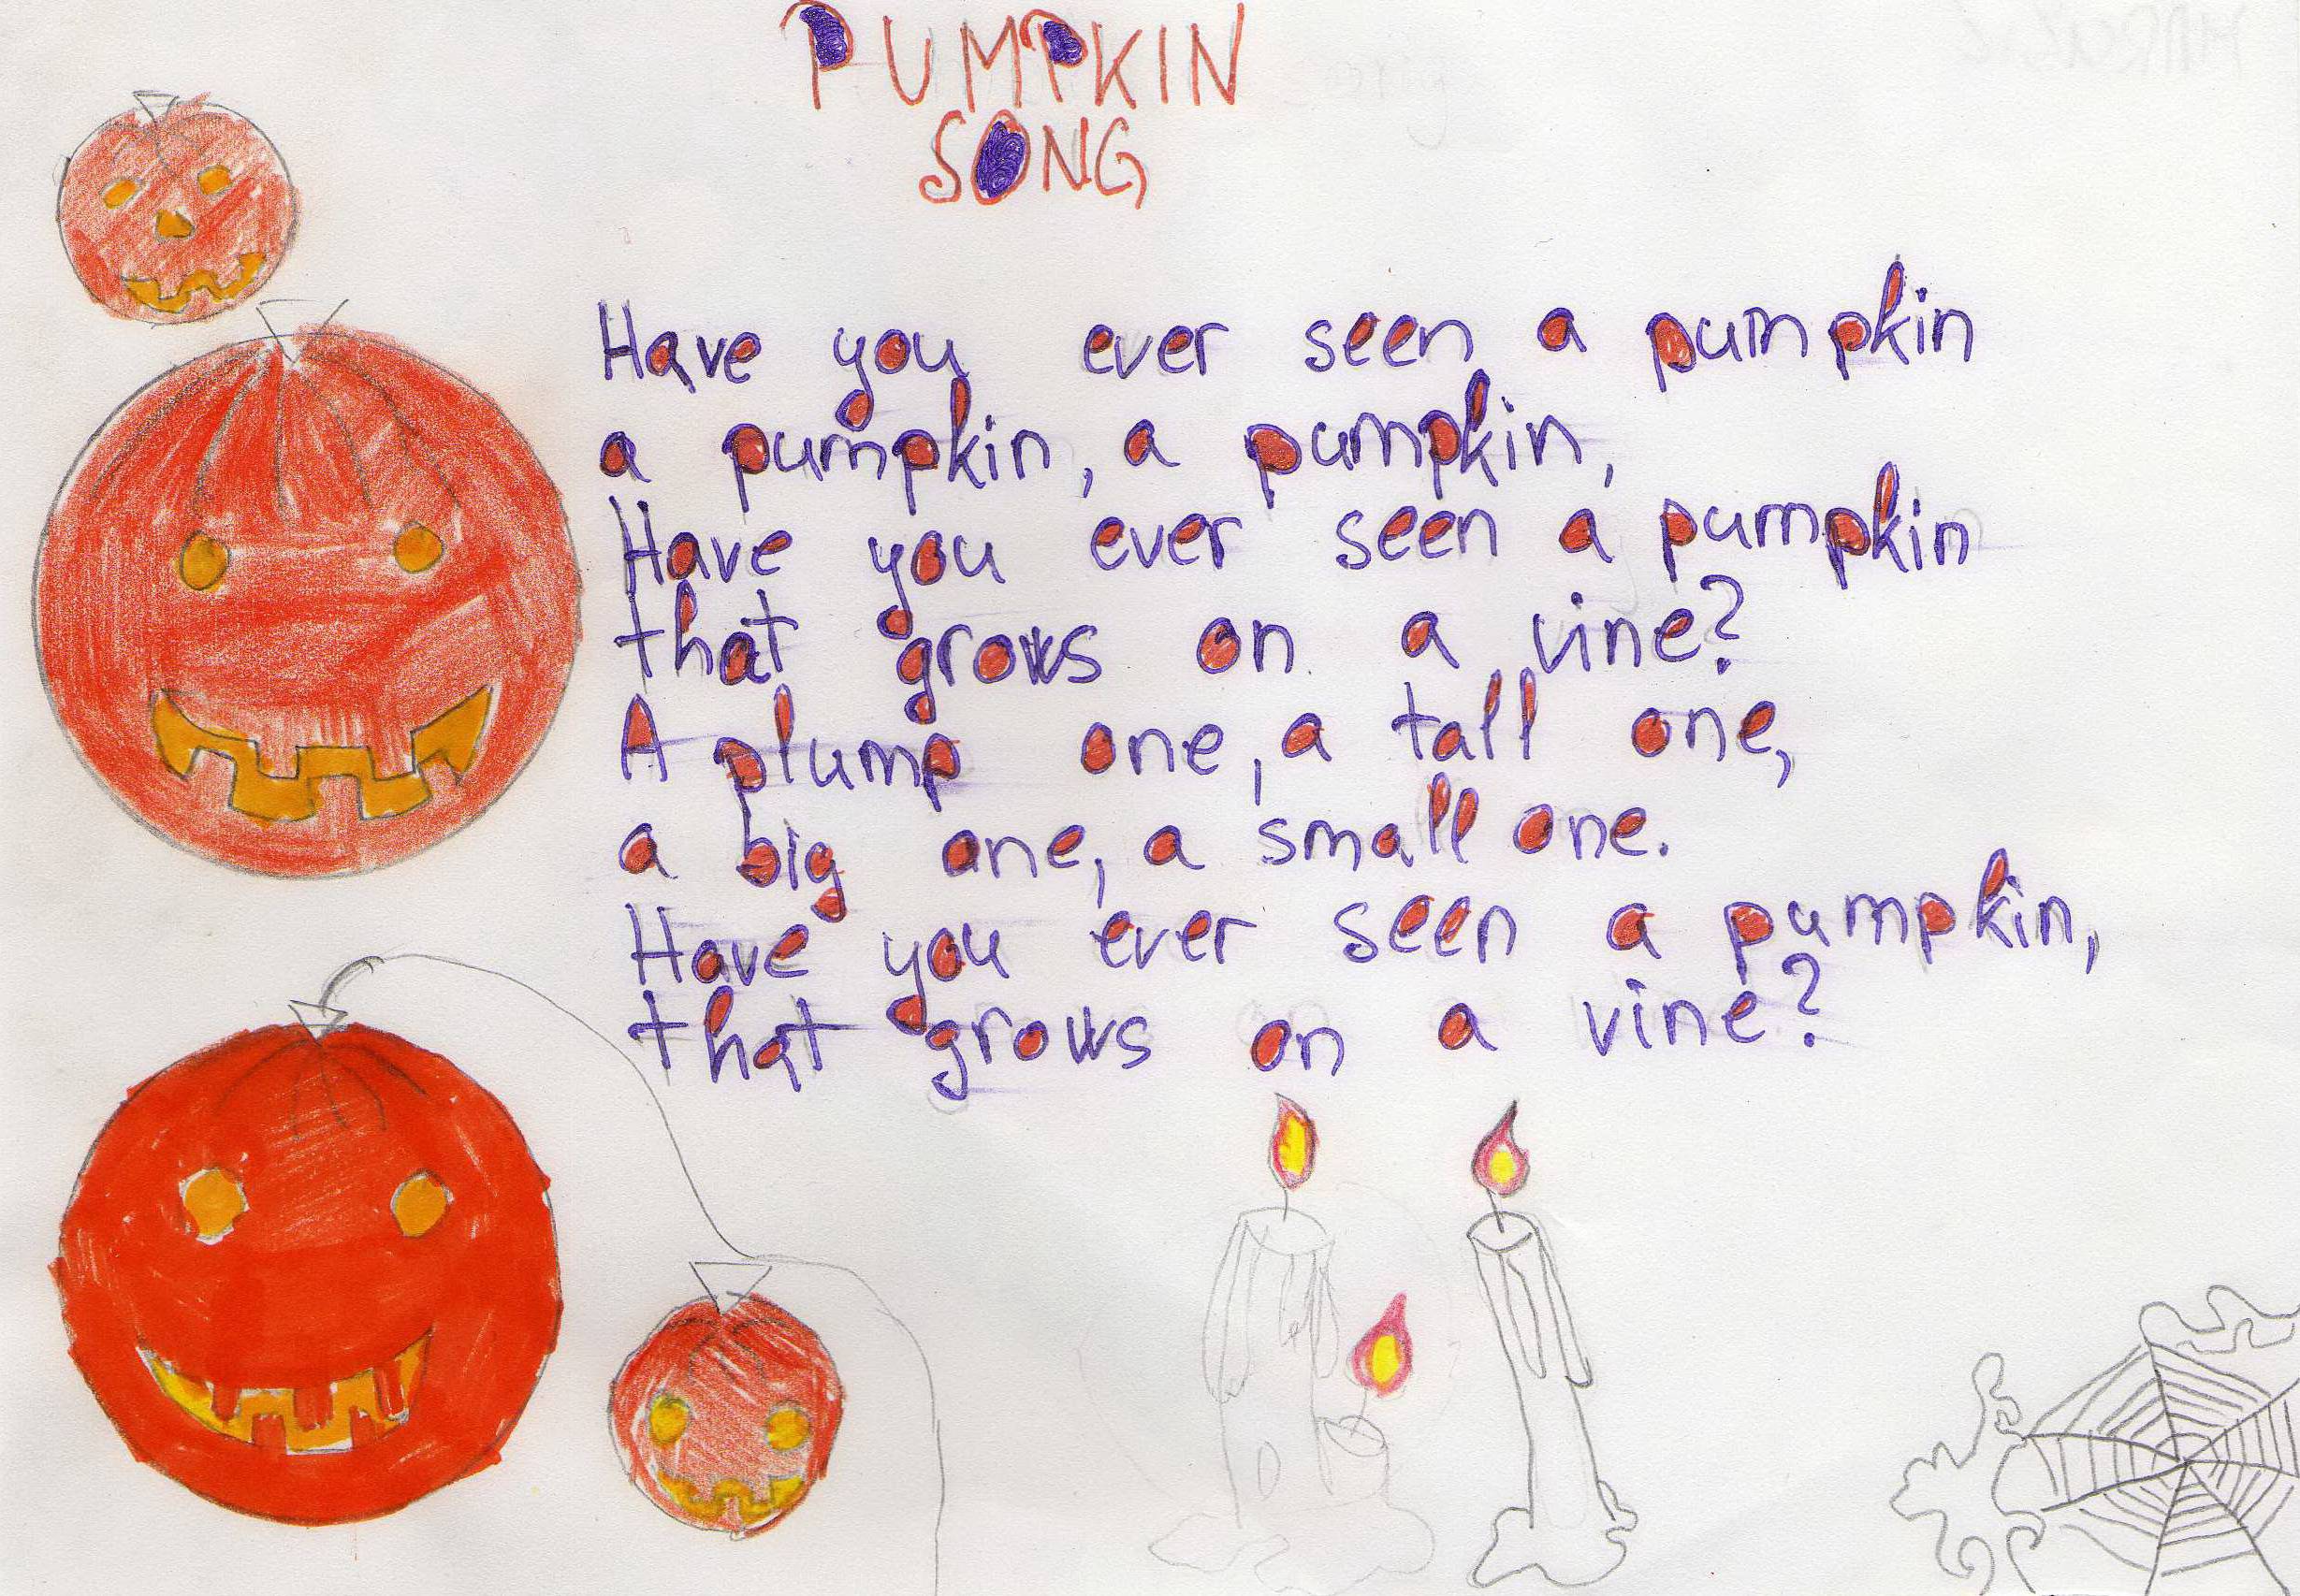 PUMPKIN
SONG
Have you ever seen a pumpkin
a pumpkin, a pumpkin,
Have you ever seen a pumpkin
that grows on a vine?
A plump one, a tall one,
a big one, a small one.
Have you ever seen a pumpkin,
that grows on a vine?